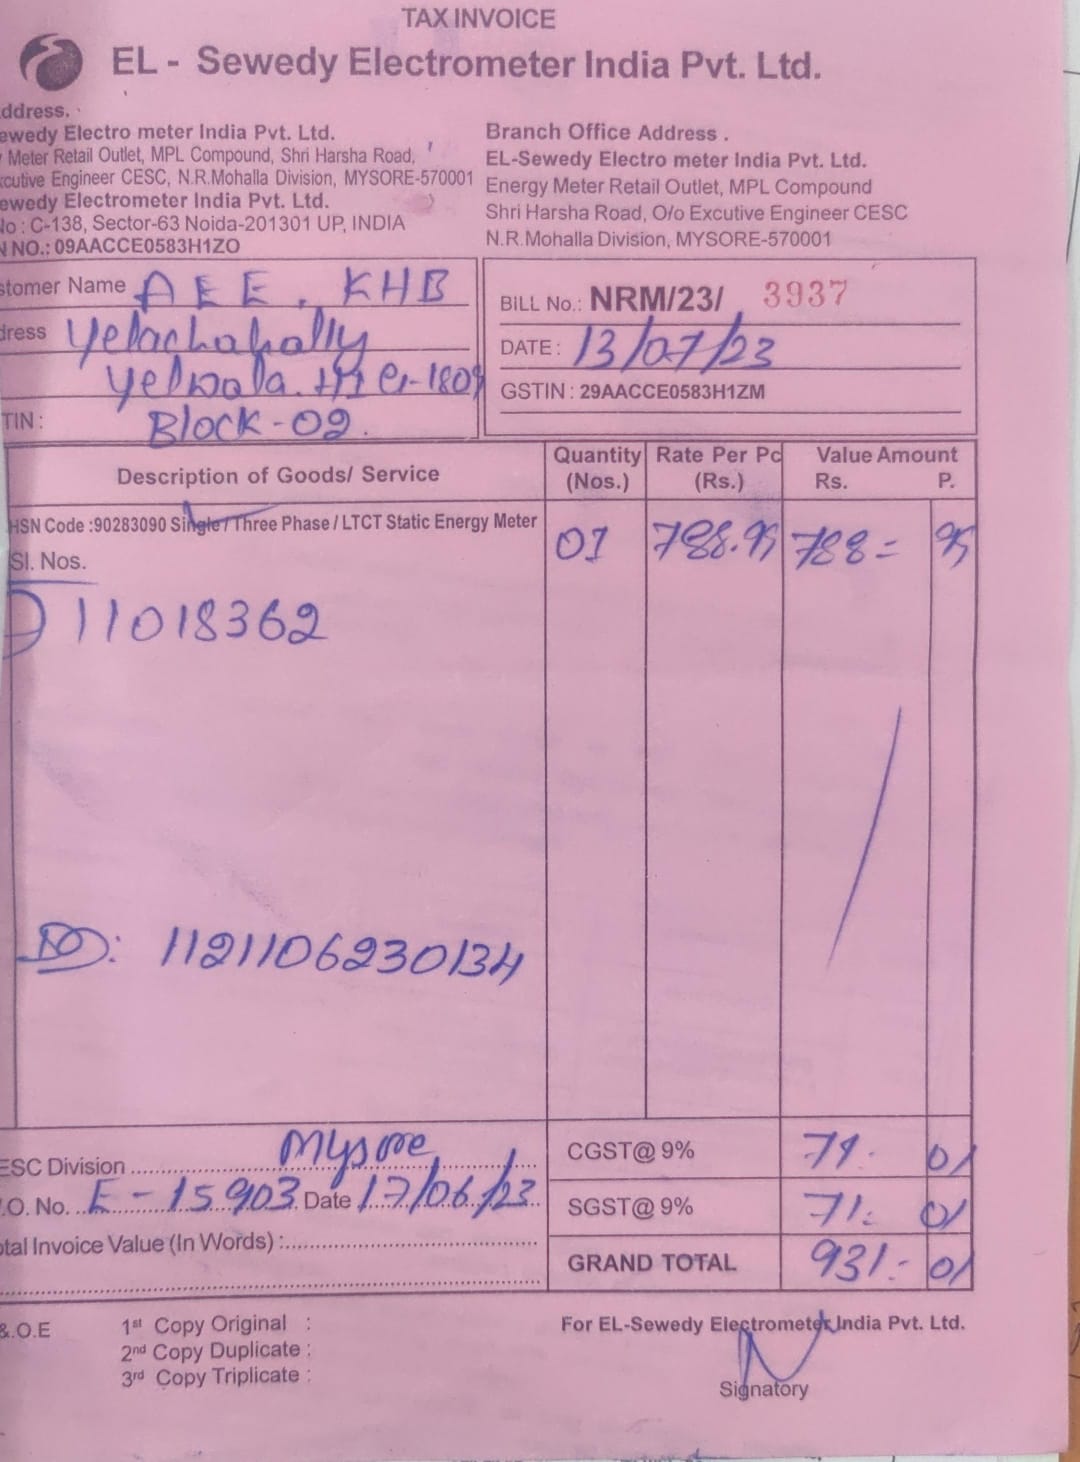 TAX INVOICE
EL - Sewedy Electrometer India Pvt. Ltd.
ddress.
ewedy Electro meter India Pvt. Ltd.
Meter Retail Outlet, MPL Compound, Shri Harsha Road,
xcutive Engineer CESC, N.R.Mohalla Division, MYSORE-570001
ewedy Electrometer India Pvt. Ltd.
No : C-138, Sector-63 Noida-201301 UP, INDIA
N NO.: 09AACCE0583H1ZO
Branch Office Address .
EL-Sewedy Electro meter India Pvt. Ltd.
Energy Meter Retail Outlet, MPL Compound
Shri Harsha Road, O/o Excutive Engineer CESC
N.R.Mohalla Division, MYSORE-570001
stomer Name AEE, KHB
dress Yelachahally
Yelwala.
TIN : Block-09.
BILL No.: NRM/23/ 3937
DATE : 13/07/23
GSTIN : 29AACCE0583H1ZM
Description of Goods/ Service Quantity (Nos.) Rate Per Pc (Rs.) Value Amount Rs. P.
HSN Code :90283090 Single / Three Phase / LTCT Static Energy Meter 01 788.95 788= 95
Sl. Nos.
11018362
1121106230134
ESC Division Mysore
.O. No. E-15903 Date 17/06/23
otal Invoice Value (In Words) :
CGST@ 9% 71. 01
SGST@ 9% 71. 01
GRAND TOTAL 931.- 01
&.O.E
1st Copy Original :
2nd Copy Duplicate :
3rd Copy Triplicate :
For EL-Sewedy Electrometer India Pvt. Ltd.
Signatory